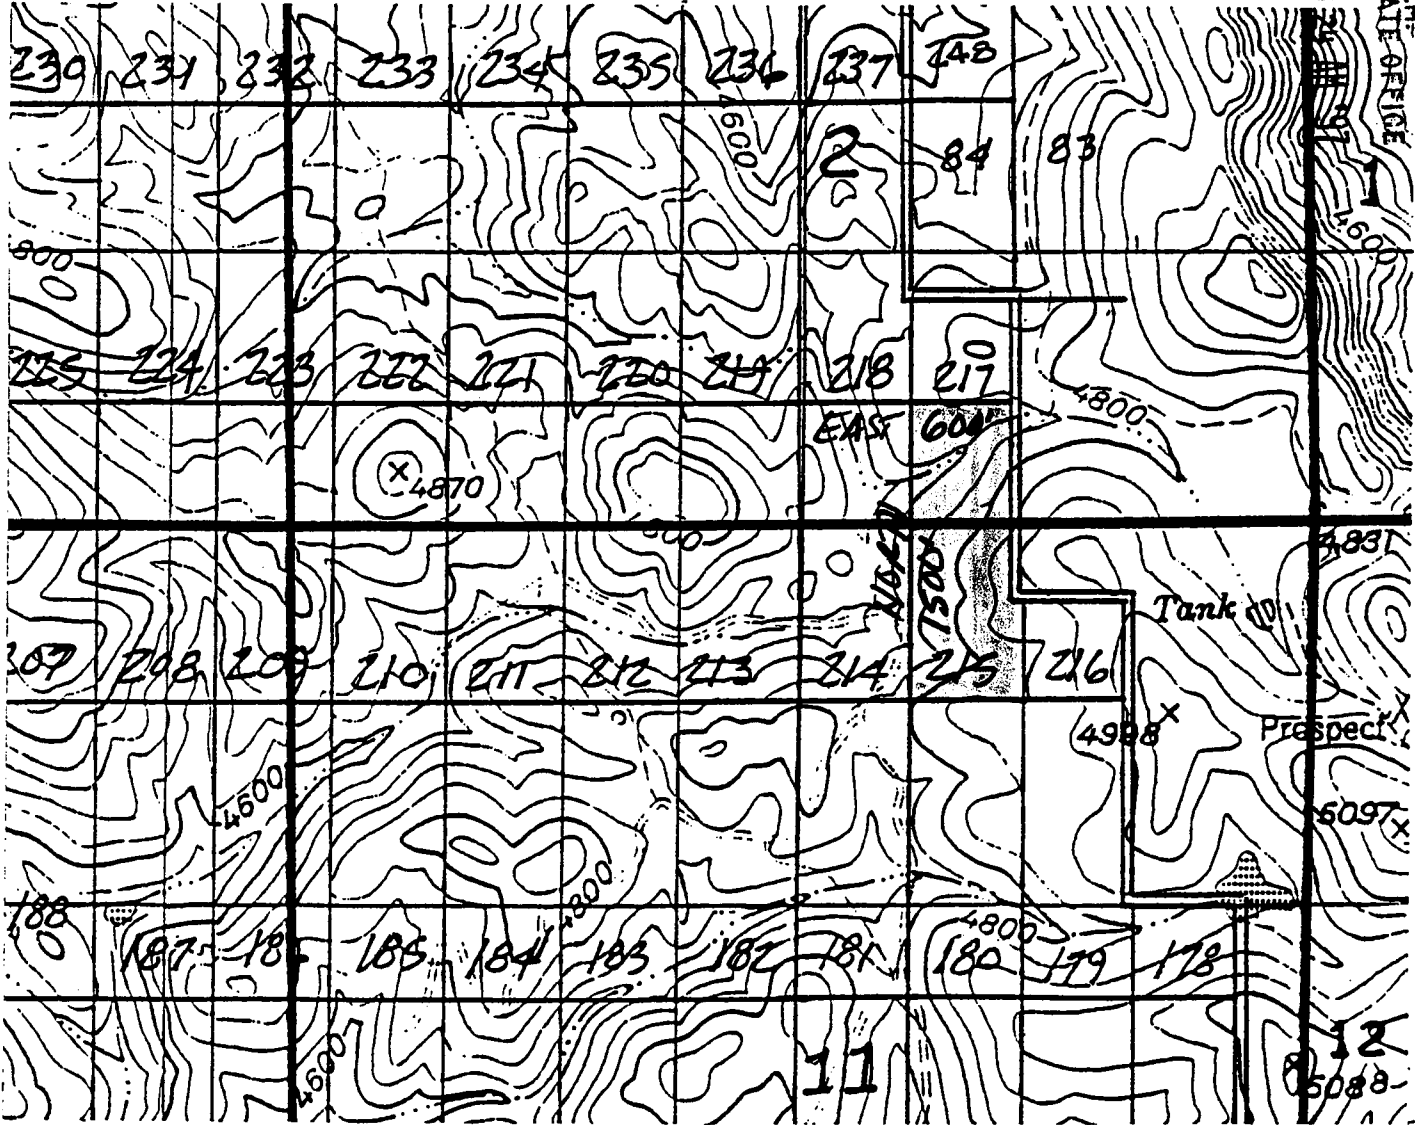 230 231 232 233 234 235 236 237 248
ATE OFFICE
4600
2 84 83 1
4600
800
225 224 223 222 221 220 219 218 217
4800
EAST 600'
4870
NORTH 1500'
4831
Tank
207 208 209 210 211 212 213 214 215 216
4998
Prospect
4600
5097
4800
188
4800
187 185 184 183 182 181 180 179 178
4600
11 12
5088